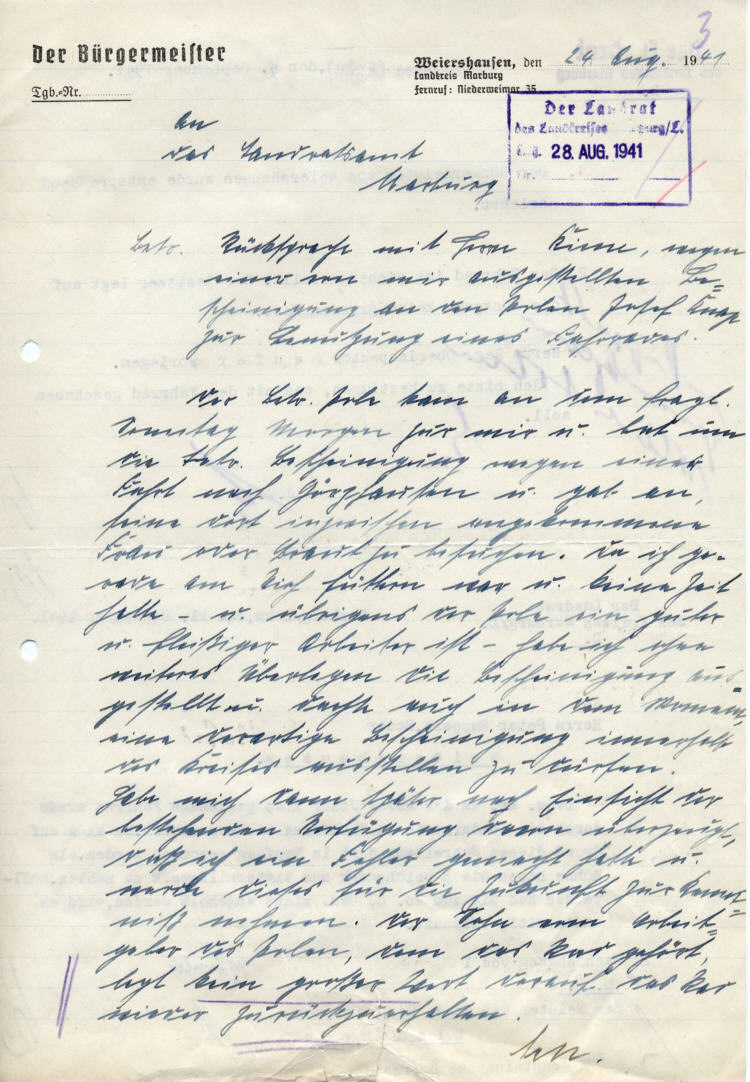 3
Der Bürgermeister
Weiershausen, den 24 Aug. 1941
Landkreis Marburg
Tgb.-Nr.
Fernruf: Niederweimar 35
Der Landrat
des Landkreises burg/L.
28. AUG. 1941
Nr.
An
das Landratsamt
Marburg
Betr. Rücksprache mit Herrn , wegen
einer von mir ausgestellten Be=
scheinigung an den Polen Josef
zur Benutzung eines Fahrrades.
Der betr. Pole kam an dem fragl.
Sonntag Morgen zur mir u. bat um
die betr. Bescheinigung wegen einer
Fahrt nach u. gab an,
seine dort inzwischen angekommene
Frau oder Braut zu besuchen. Da ich ge-
rade am Vieh füttern war u. keine Zeit
hatte u. übrigens der Pole ein guter
u. fleißiger Arbeiter ist – habe ich ohne
weiteres Überlegen die Bescheinigung aus-
gestellt u. dachte auch in dem Moment,
eine derartige Bescheinigung innerhalb
des Kreises ausstellen zu dürfen.
Habe mich dann später nach Einsicht der
bestehenden Verfügung davon überzeugt,
daß ich ein Fehler gemacht hatte u.
werde dieses für die Zukunft zur Kennt-
niß nehmen. Der Sohn vom Arbeit=
geber des Polen, dem das Rad gehört,
legt kein großer Wert darauf das Rad
wieder zurückzuerhalten.